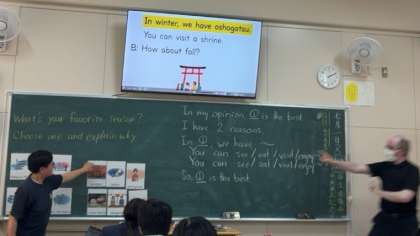 In winter, we have oshogatsu.
You can visit a shrine.
B: How about fall?
What's your favorite season?
Choose one and explain why.
In my opinion ① is the best.
I have 2 reasons.
In ①, we have ~
You can see/eat/visit/enjoy
You can see/eat/visit/enjoy
So, ① is the best